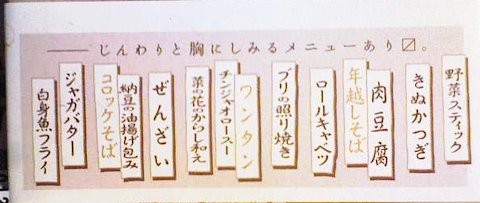 じんわりと胸にしみるメニューあり〼。
野菜スティック
きぬかつぎ
肉豆腐
年越しそば
ロールキャベツ
ブリの照り焼き
ワンタン
チンジャオロースー
菜の花のからし和え
ぜんざい
納豆の油揚げ包み
コロッケそば
ジャガバター
白身魚フライ